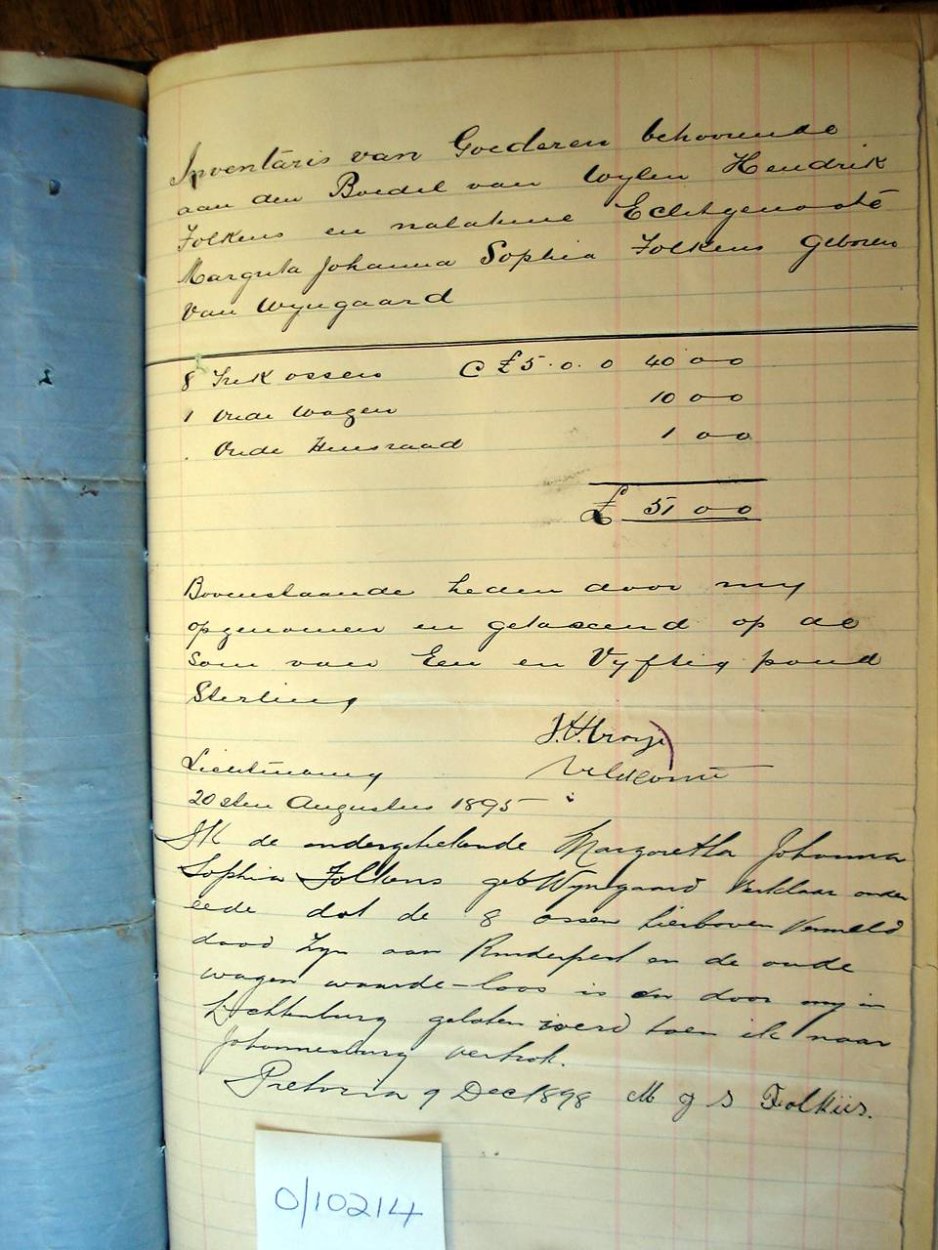 Inventaris van Goederen behoorende
aan den Boedel van Wylen Hendrik
Folkens en nalatene Echtgenoote
Margreta Johanna Sophia Folkens geboren
van Wyngaard
8 Trek ossen @ £5.0.0 40 0 0
1 Oude Wagen 10 0 0
. Oude Huisraad 1 0 0
£ 51 0 0
Bovenstaande heden door my
opgenomen en getaxeerd op de
Som van Een en Vyftig pond
Sterling
Veldcornet
Lichtenburg
20sten Augustus 1895
Ik de ondergetekende Margaretha Johanna
Sophia Folkens geb Wyngaard verklaar onder
eede dat de 8 ossen hierboven vermeld
dood zyn aan Runderpest en de oude
wagen waarde-loos is en door my in
Lichtenburg gelaten werd toen ik naar
Johannesburg vertrok.
Pretoria 9 Dec 1898 M J S Folkins.
0/10214